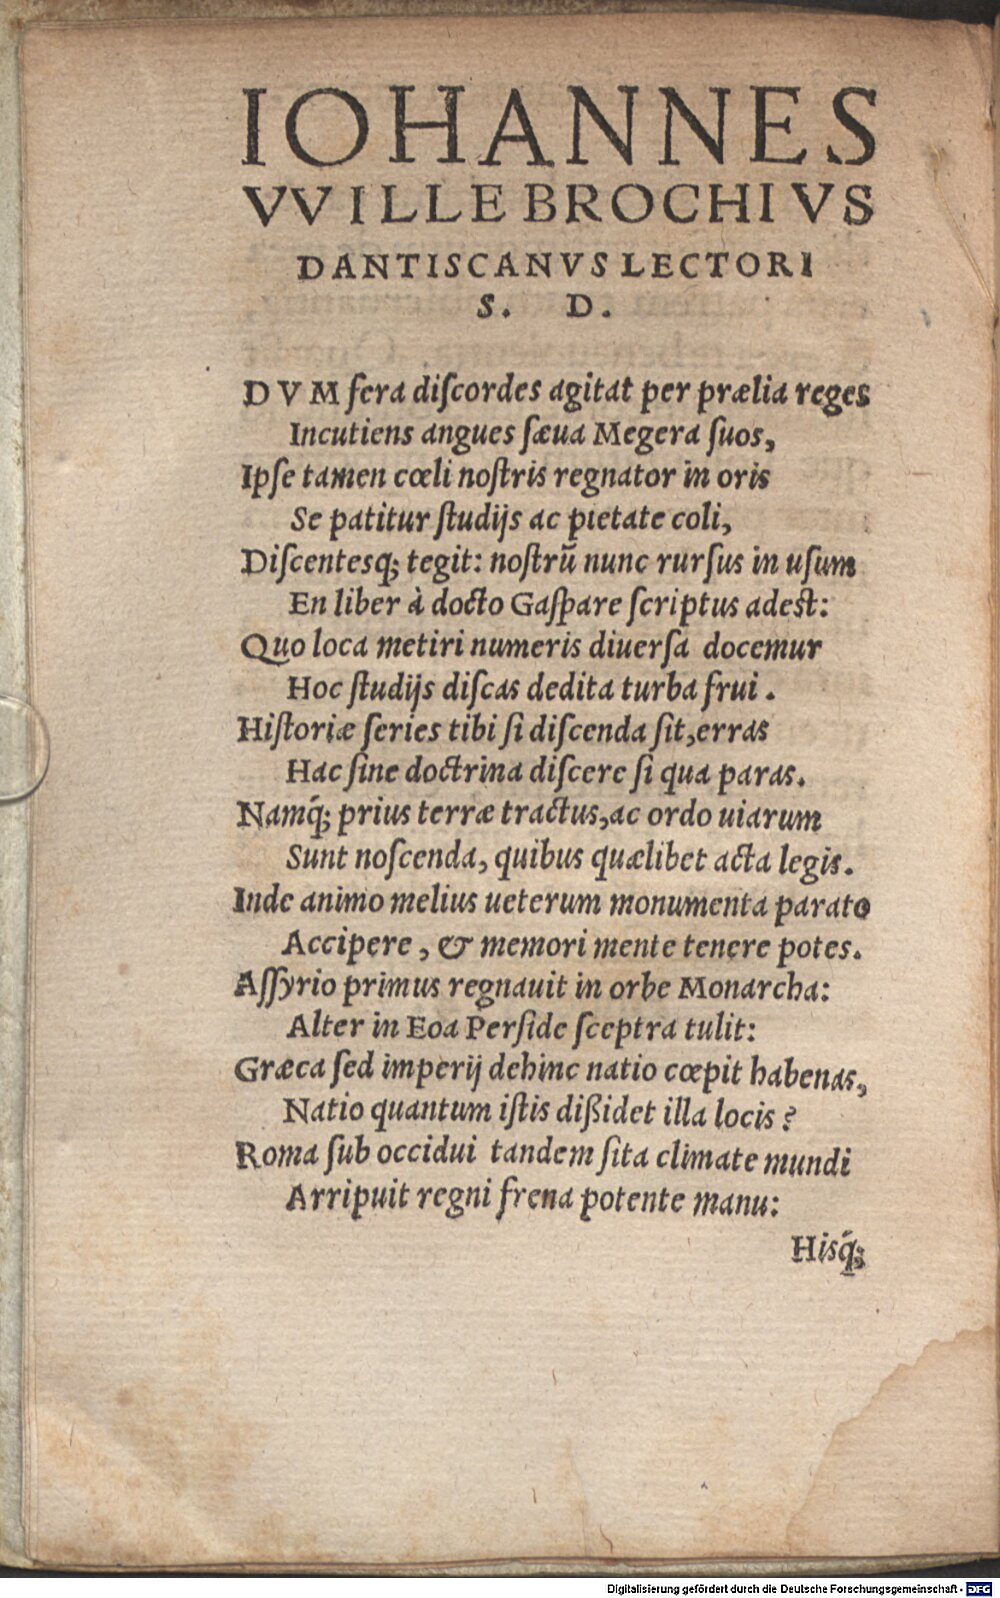 IOHANNES
VVILLEBROCHIVS
DANTISCANVS LECTORI
S. D.
DVM fera diſcordes agitat per prælia reges
Incutiens angues ſæua Megera ſuos,
Ipſe tamen cœli noſtris regnator in oris
Se patitur ſtudijs ac pietate coli,
Diſcentesq́; tegit: noſtrũ nunc rurſus in uſum
En liber à docto Gaſpare ſcriptus adest:
Quo loca metiri numeris diuerſa docemur
Hoc ſtudijs diſcas dedita turba frui.
Hiſtoriæ ſeries tibi ſi diſcenda ſit, erras
Hac ſine doctrina diſcere ſi qua paras.
Namq́; prius terræ tractus, ac ordo uiarum
Sunt noſcenda, quibus quælibet acta legis.
Inde animo melius ueterum monumenta parato
Accipere, & memori mente tenere potes.
Aſſyrio primus regnauit in orbe Monarcha:
Alter in Eoa Perſide ſceptra tulit:
Græca ſed imperij dehinc natio cœpit habenas,
Natio quantum iſtis dißidet illa locis?
Roma ſub occidui tandem ſita climate mundi
Arripuit regni frena potente manu:
Hisq́;
Digitalisierung gefördert durch die Deutsche Forschungsgemeinschaft - DFG